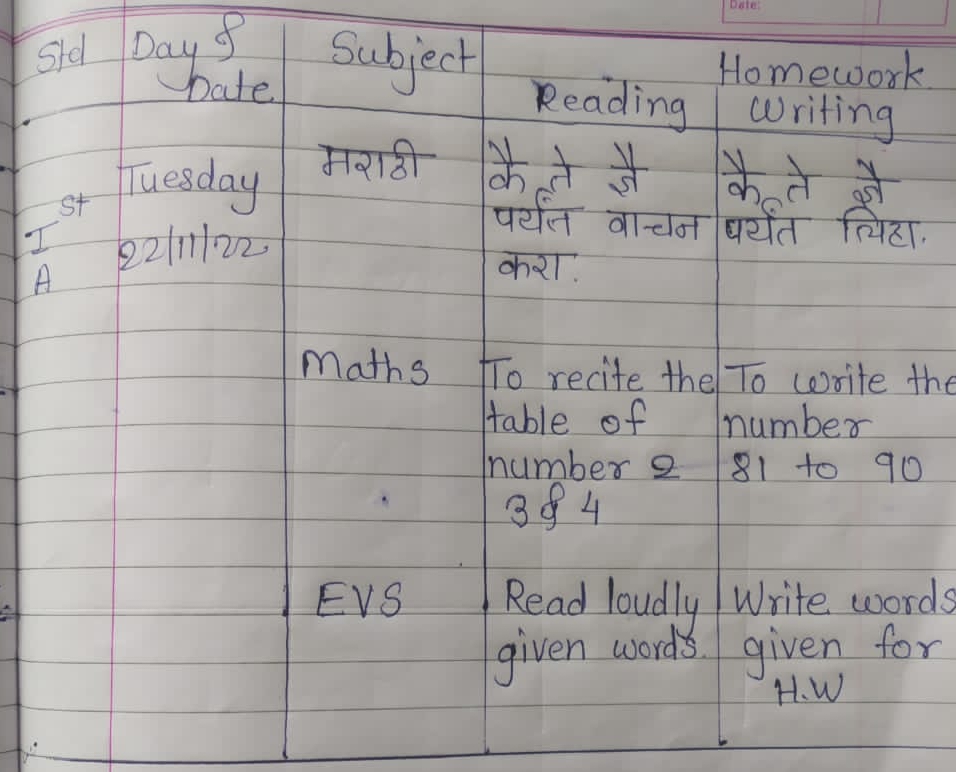 Date:
Std
Day &
Date
Subject
Homework
Reading
Writing
Ist
A
Tuesday
22/11/22
मराठी
कै ते ज्ञै
पर्यंत वाचन
करा.
कै ते ज्ञै
पर्यंत लिहा.
Maths
To recite the
table of
number 2
3 & 4
To write the
number
81 to 90
EVS
Read loudly
given words.
Write words
given for
H.W